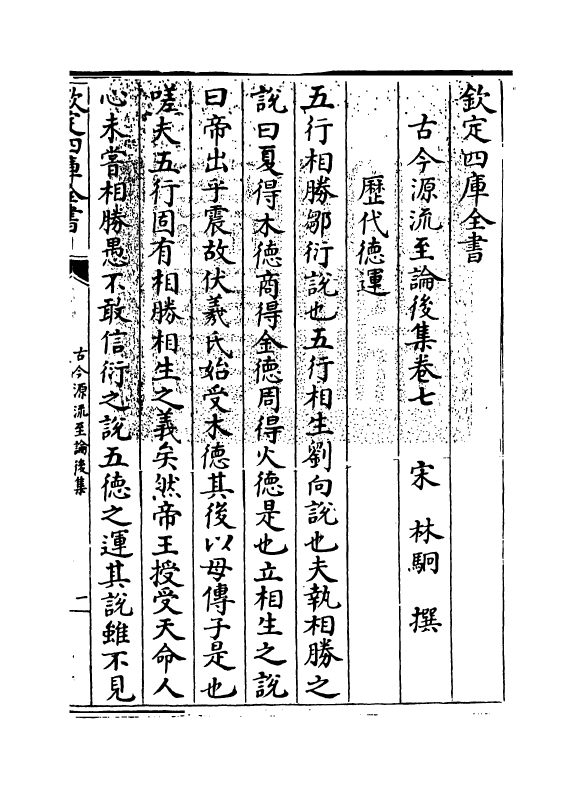 欽定四庫全書
古今源流至論後集卷七　宋　林駉　撰
歷代德運
五行相勝鄒衍說也五行相生劉向說也夫執相勝之
說曰夏得木德商得金德周得火德是也立相生之說
曰帝出乎震故伏羲氏始受木德其後以母傳子是也
嗟夫五行固有相勝相生之義矣然帝王授受天命人
心未嘗相勝愚不敢信衍之說五德之運其說雖不見
欽定四庫全書
古今源流至論後集